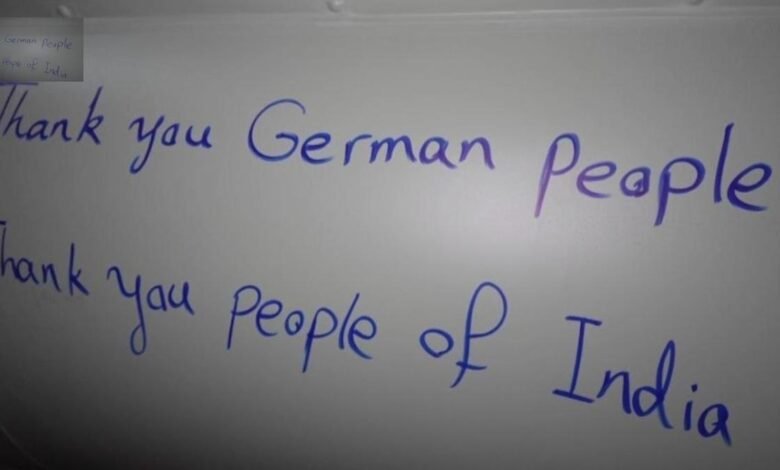 German People
People of India
Thank you German People
Thank you People of India